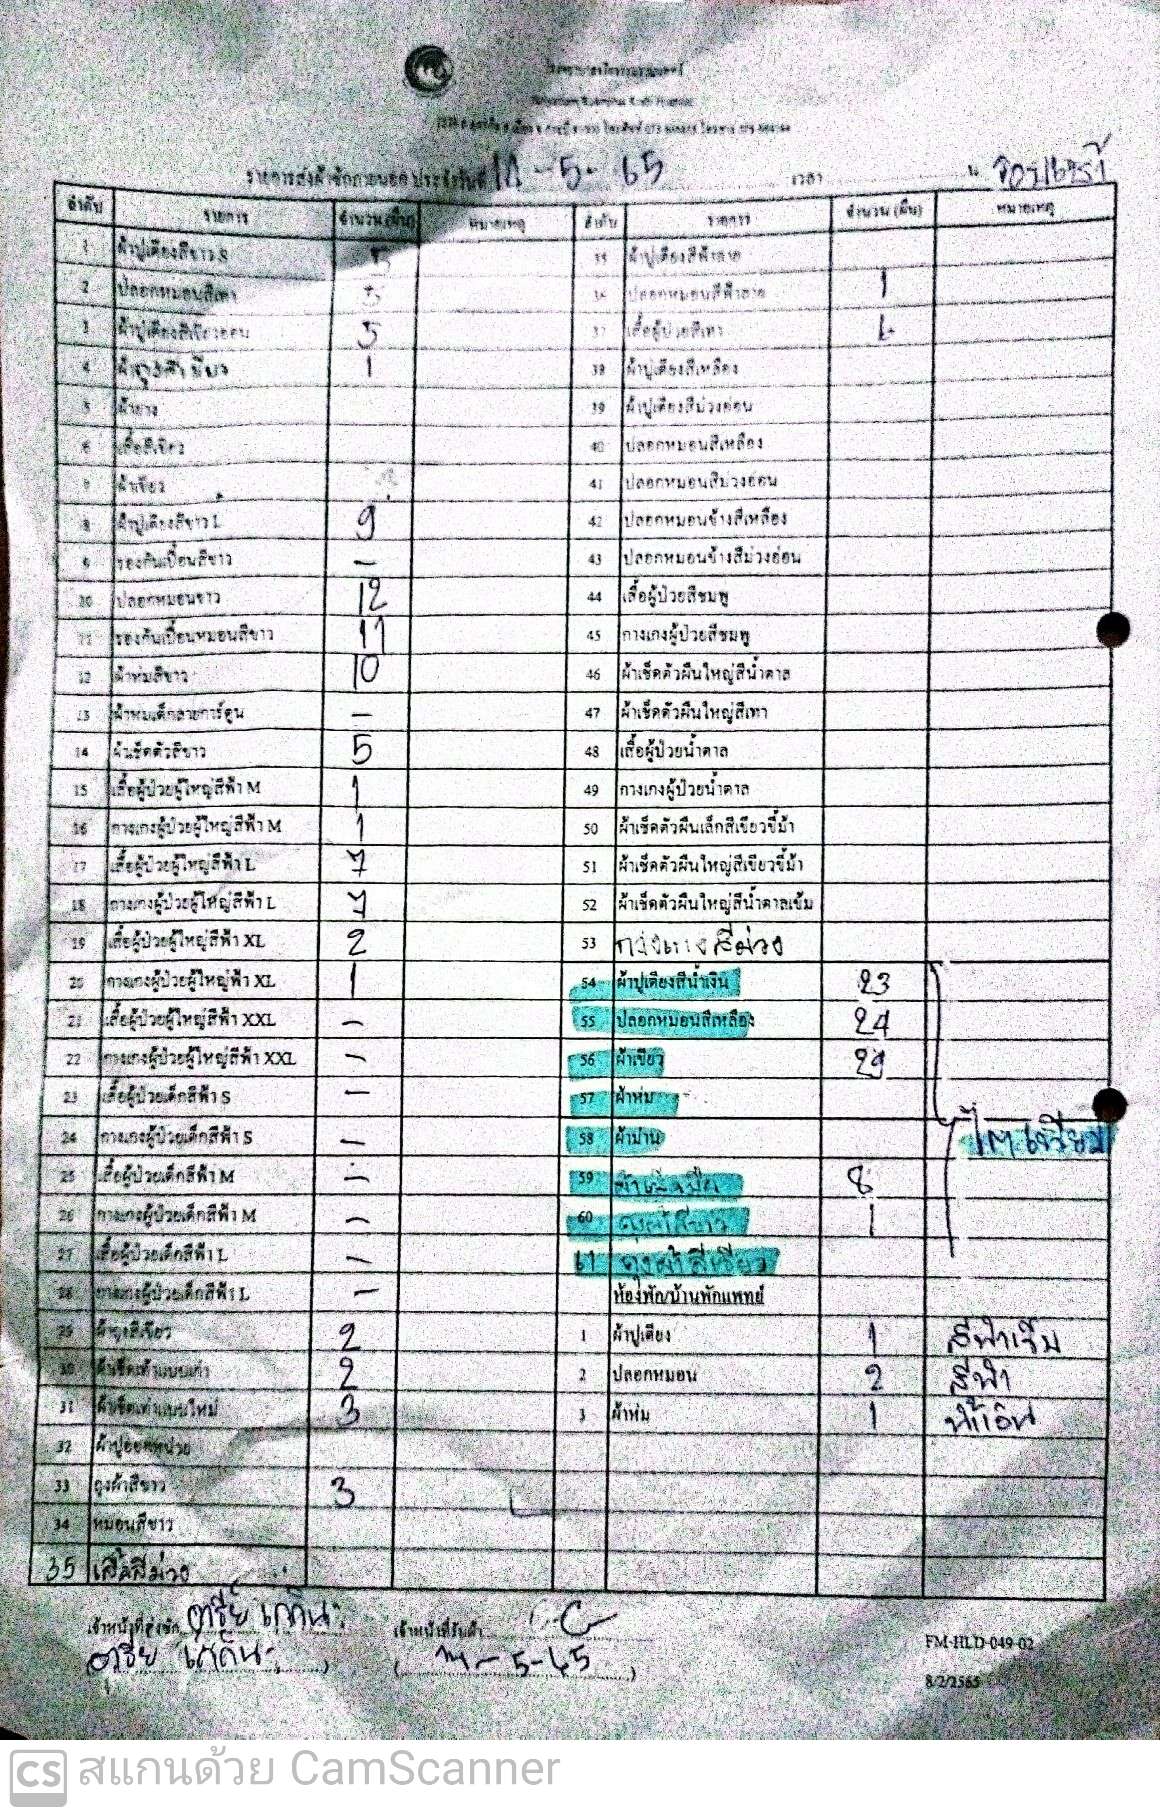 รายการส่งผ้าซักภายนอก ประจำวันที่ -5-65 เวลา น.
ลำดับ รายการ จำนวน (ผืน) หมายเหตุ ลำดับ รายการ จำนวน (ผืน) หมายเหตุ
1 ผ้าปูเตียงสีขาว S 5 35 ผ้าปูเตียงสีฟ้าลาย
2 ปลอกหมอนสีเทา 5 36 ปลอกหมอนสีฟ้าลาย 1
3 ผ้าปูเตียงสีเขียวอ่อน 5 37 เสื้อผู้ป่วยสีเทา
4 1 38 ผ้าปูเตียงสีเหลือง
5 ผ้ายาง 39 ผ้าปูเตียงสีม่วงอ่อน
6 เสื้อสีเขียว 40 ปลอกหมอนสีเหลือง
7 ผ้าเขียว 41 ปลอกหมอนสีม่วงอ่อน
8 ผ้าปูเตียงสีขาว L 9 42 ปลอกหมอนข้างสีเหลือง
9 รองกันเปื้อนสีขาว - 43 ปลอกหมอนข้างสีม่วงอ่อน
10 ปลอกหมอนขาว 12 44 เสื้อผู้ป่วยสีชมพู
11 รองกันเปื้อนหมอนสีขาว 11 45 กางเกงผู้ป่วยสีชมพู
12 ผ้าห่มสีขาว 10 46 ผ้าเช็ดตัวผืนใหญ่สีน้ำตาล
13 ผ้าห่มเด็กลายการ์ตูน - 47 ผ้าเช็ดตัวผืนใหญ่สีเทา
14 ผ้าเช็ดตัวสีขาว 5 48 เสื้อผู้ป่วยน้ำตาล
15 เสื้อผู้ป่วยผู้ใหญ่สีฟ้า M 1 49 กางเกงผู้ป่วยน้ำตาล
16 กางเกงผู้ป่วยผู้ใหญ่สีฟ้า M 1 50 ผ้าเช็ดตัวผืนเล็กสีเขียวขี้ม้า
17 เสื้อผู้ป่วยผู้ใหญ่สีฟ้า L 7 51 ผ้าเช็ดตัวผืนใหญ่สีเขียวขี้ม้า
18 กางเกงผู้ป่วยผู้ใหญ่สีฟ้า L 7 52 ผ้าเช็ดตัวผืนใหญ่สีน้ำตาลเข้ม
19 เสื้อผู้ป่วยผู้ใหญ่สีฟ้า XL 2 53 กางเกงสีม่วง
20 กางเกงผู้ป่วยผู้ใหญ่ฟ้า XL 1 54 ผ้าปูเตียงสีน้ำเงิน 23
21 เสื้อผู้ป่วยผู้ใหญ่สีฟ้า XXL - 55 ปลอกหมอนสีเหลือง 24
22 กางเกงผู้ป่วยผู้ใหญ่สีฟ้า XXL - 56 ผ้าเขียว 29
23 เสื้อผู้ป่วยเด็กสีฟ้า S - 57 ผ้าห่ม
24 กางเกงผู้ป่วยเด็กสีฟ้า S - 58 ผ้าม่าน ไตเทียม
25 เสื้อผู้ป่วยเด็กสีฟ้า M - 59 8
26 กางเกงผู้ป่วยเด็กสีฟ้า M - 60 ถุงผ้าสีขาว 1
27 เสื้อผู้ป่วยเด็กสีฟ้า L - 61 ถุงผ้าสีเขียว
28 กางเกงผู้ป่วยเด็กสีฟ้า L - ห้องพัก/บ้านพักแพทย์
29 ผ้าถุงสีเขียว 2 1 ผ้าปูเตียง 1 สีฟ้าเข้ม
30 ผ้าเช็ดเท้าแบบเก่า 2 2 ปลอกหมอน 2 สีฟ้า
31 ผ้าเช็ดเท้าแบบใหม่ 3 3 ผ้าห่ม 1 น้ำเงิน
32
33 ถุงผ้าสีขาว 3
34 หมอนสีขาว
35 เสื้อสีม่วง
เจ้าหน้าที่ส่งซัก เจ้าหน้าที่รับผ้า
-5-65
FM-HLD-049-02
8/2/2565
CS สแกนด้วย CamScanner